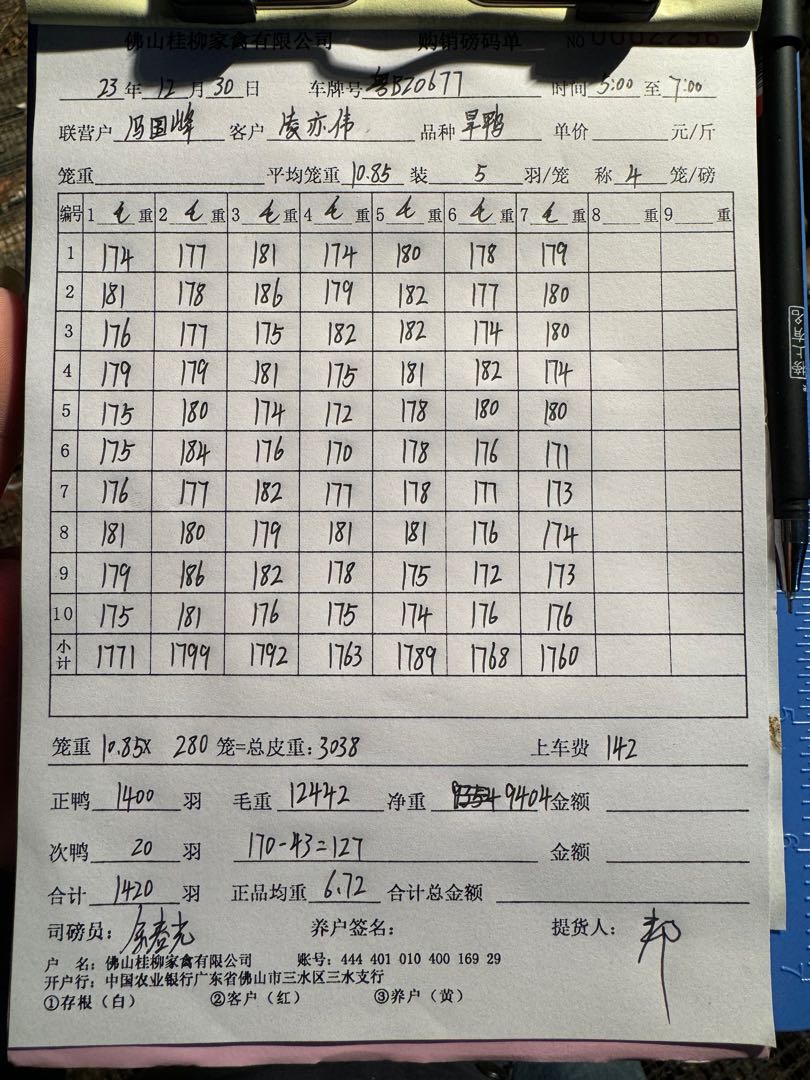 佛山桂柳家禽有限公司 购销磅码单 NO 0002296
23年12月30日 车牌号粤BZ0677 时间5:00至7:00
联营户 冯国峰 客户 凌亦伟 品种 旱鸭 单价 元/斤
笼重 平均笼重10.85 装 5 羽/笼 称 4 笼/磅
编号 1 毛 重 2 毛 重 3 毛 重 4 毛 重 5 毛 重 6 毛 重 7 毛 重 8 重 9 重
1 174 177 181 174 180 178 179
2 181 178 186 179 182 177 180
3 176 177 175 182 182 174 180
4 179 179 181 175 181 182 174
5 175 180 174 172 178 180 180
6 175 184 176 170 178 176 171
7 176 177 182 177 178 177 173
8 181 180 179 181 181 176 174
9 179 186 182 178 175 172 173
10 175 181 176 175 174 176 176
小计 1771 1799 1792 1763 1789 1768 1760
笼重 10.85× 280 笼=总皮重:3038 上车费 142
正鸭 1400 羽 毛重 12442 净重 9404 金额
次鸭 20 羽 170-43=127 金额
合计 1420 羽 正品均重 6.72 合计总金额
司磅员: 养户签名: 提货人: 邦
户 名: 佛山桂柳家禽有限公司 账号: 444 401 010 400 169 29
开户行: 中国农业银行广东省佛山市三水区三水支行
①存根(白) ②客户(红) ③养户(黄)